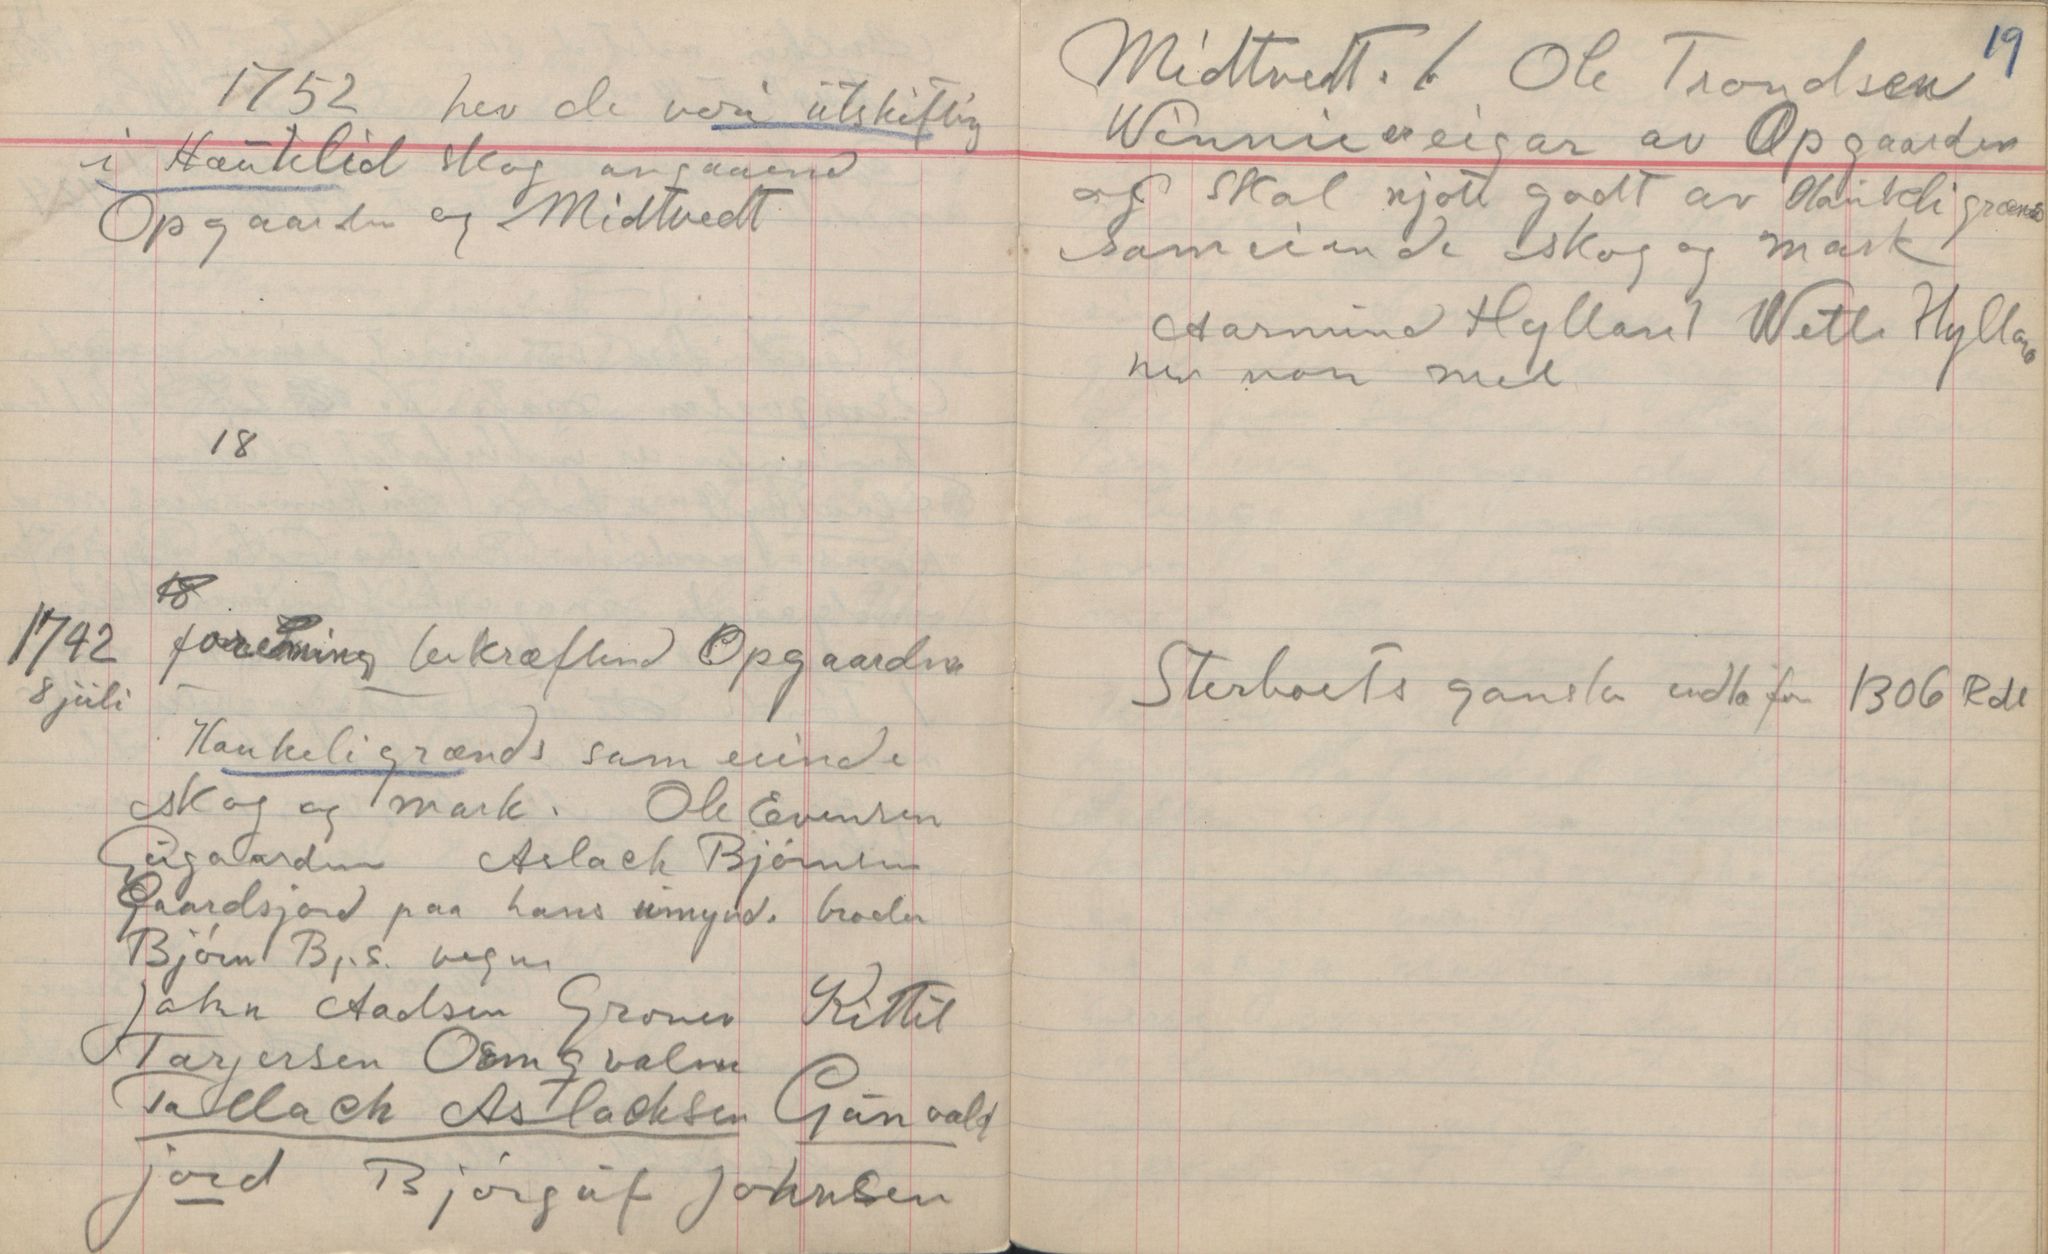 1752 hev de vori utskifting
i Haukelid skog angaaend
Opgaarden og Midtvedt
18
18
1742 foreening bekræftend Opgaarden
8 juli
Haukeligrænds sameiende
skog og mark. Ole Evensen
Øigaarden Aslack Bjørnsen
Gaardsjord paa hans umynd. broder
Bjørn Bj.s. vegne
John Aadsen Groven Kittil
Tarjersen Osmqvalm
Tallack Aslacksen Gunvald
jord Bjørguf Johnsen
19
Midtvedt. / Ole Trondsen
Winnie er eigar av Opgaarden
og skal njote godt av Haukeligrænds
sameiende skog og mark
Aarmund Hylland Wetle Hylland
hev vore med
Sterboets ganske for 1306 Rdl